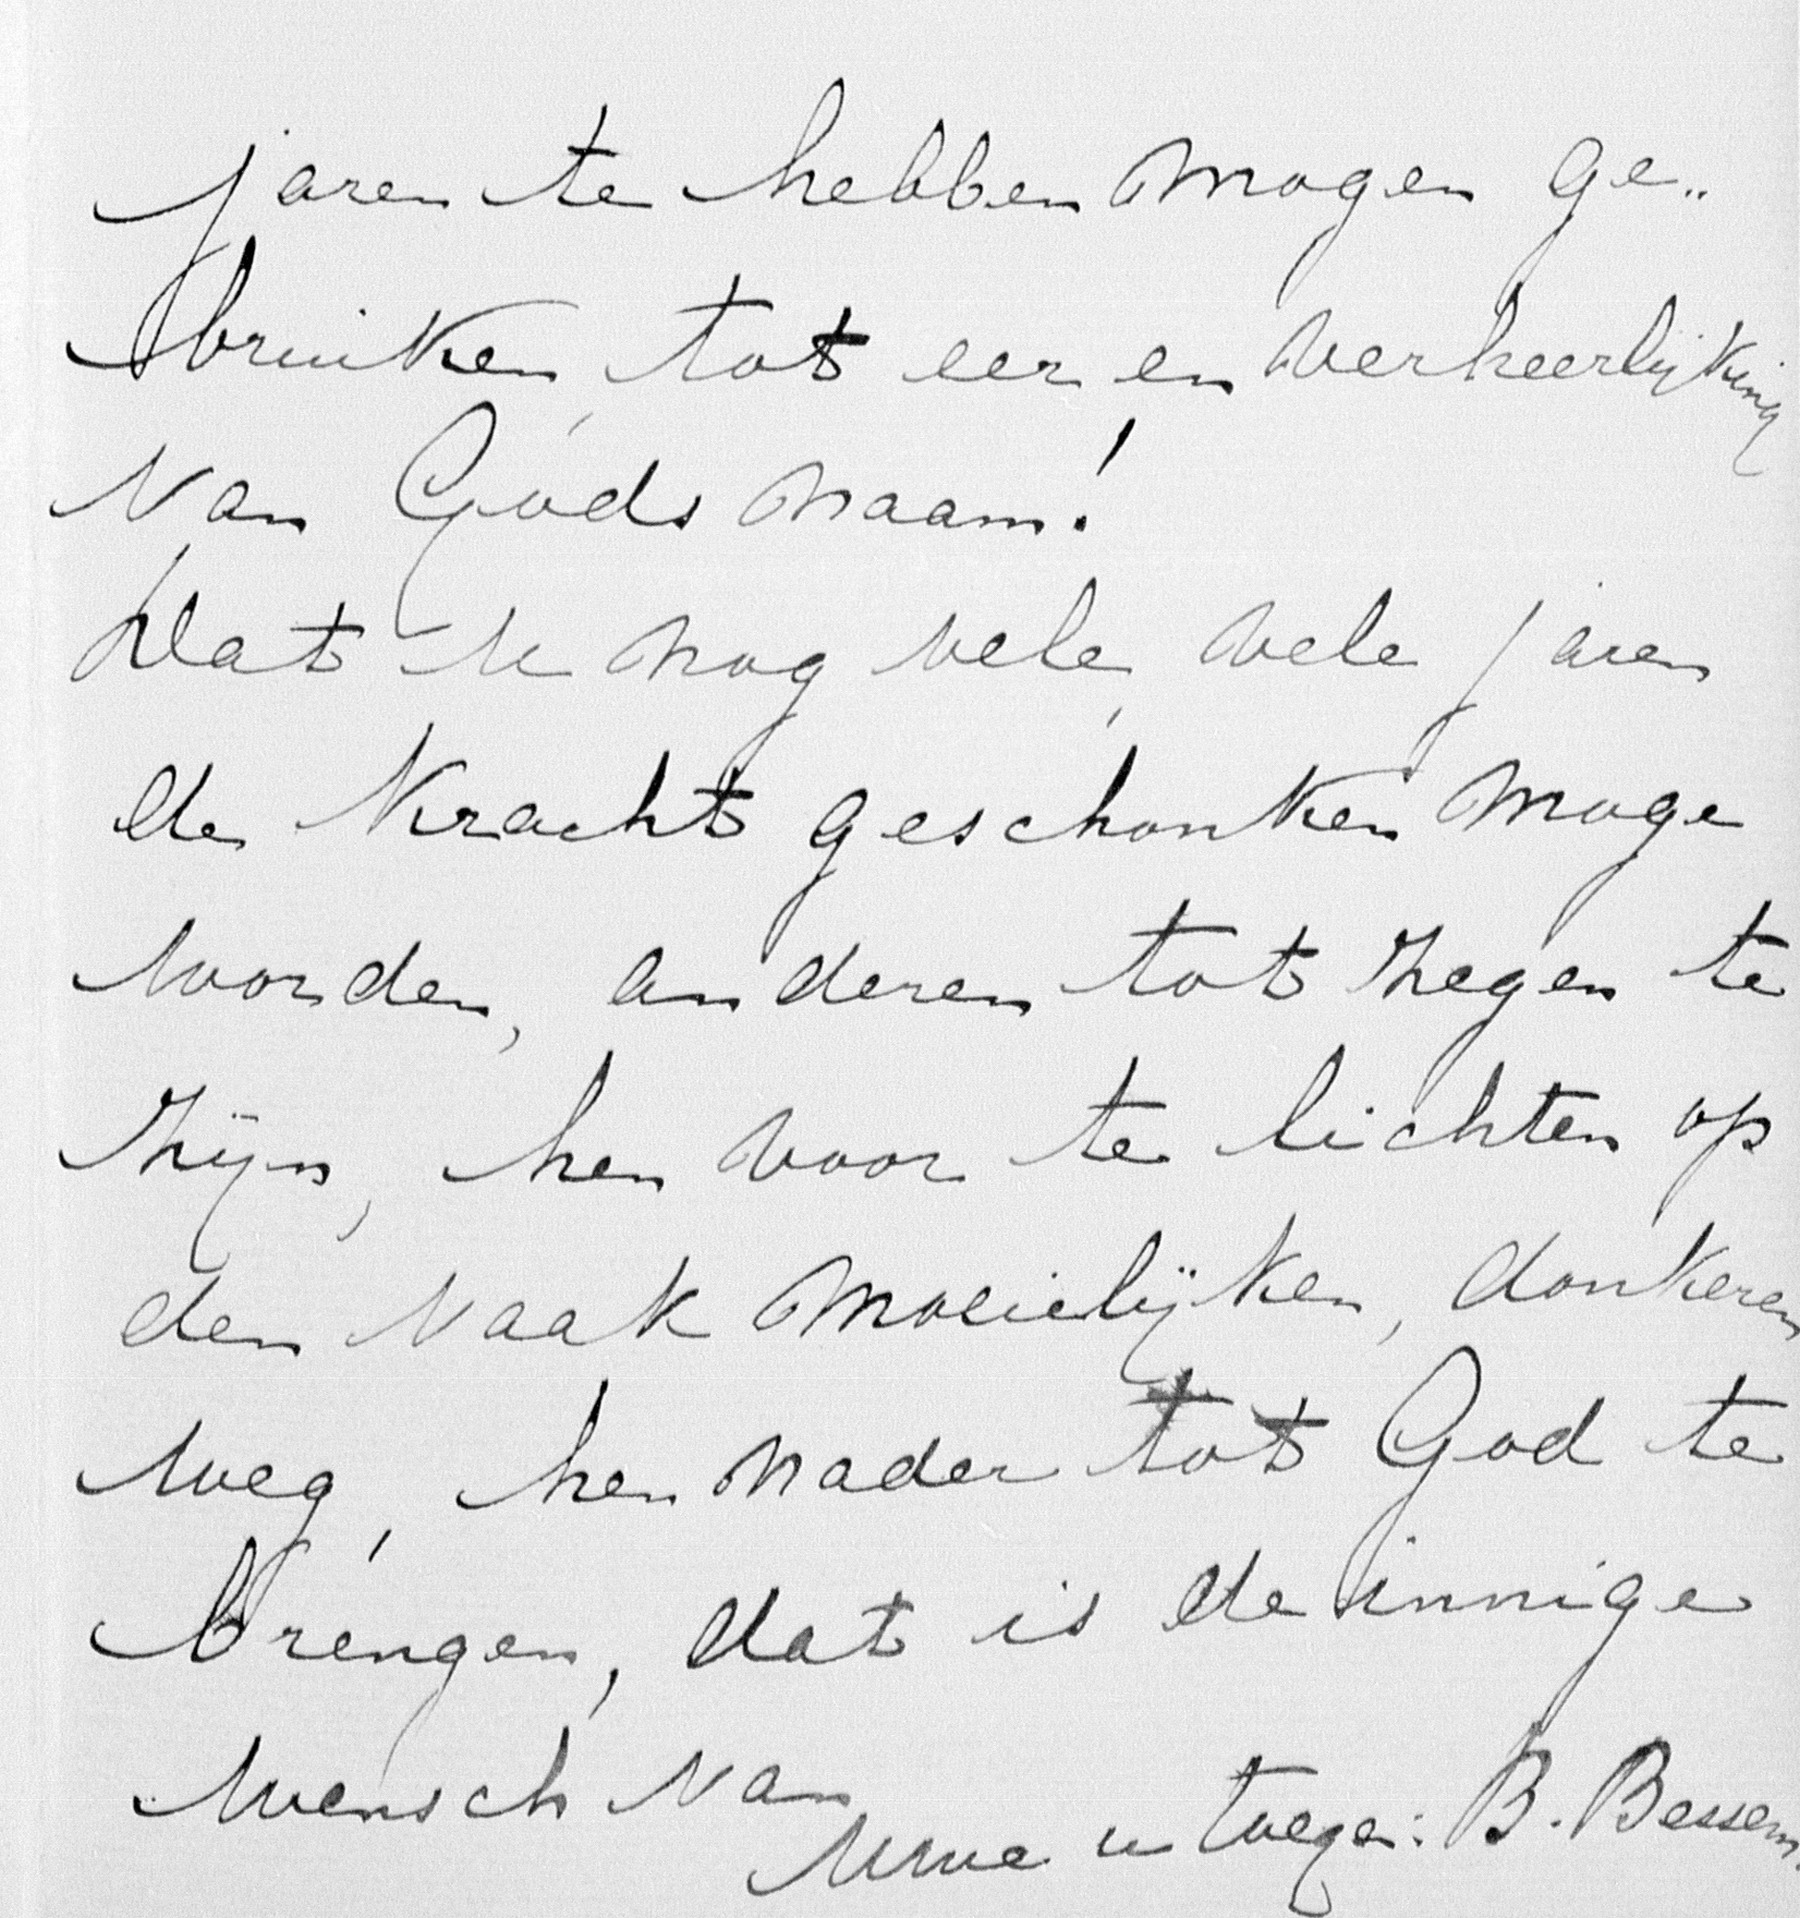 jaren te hebben mogen ge„
bruiken, tot eer en verheerlijking
van Gods naam!
Dat U nog vele, vele jaren
de kracht geschonken moge
worden, anderen tot zegen te
zijn, hen voor te lichten op
den vaak moeielijken, donkeren
weg, hen nader tot God te
brengen, dat is de innige
wensch van
Uwe u toegen: B. Bessem.